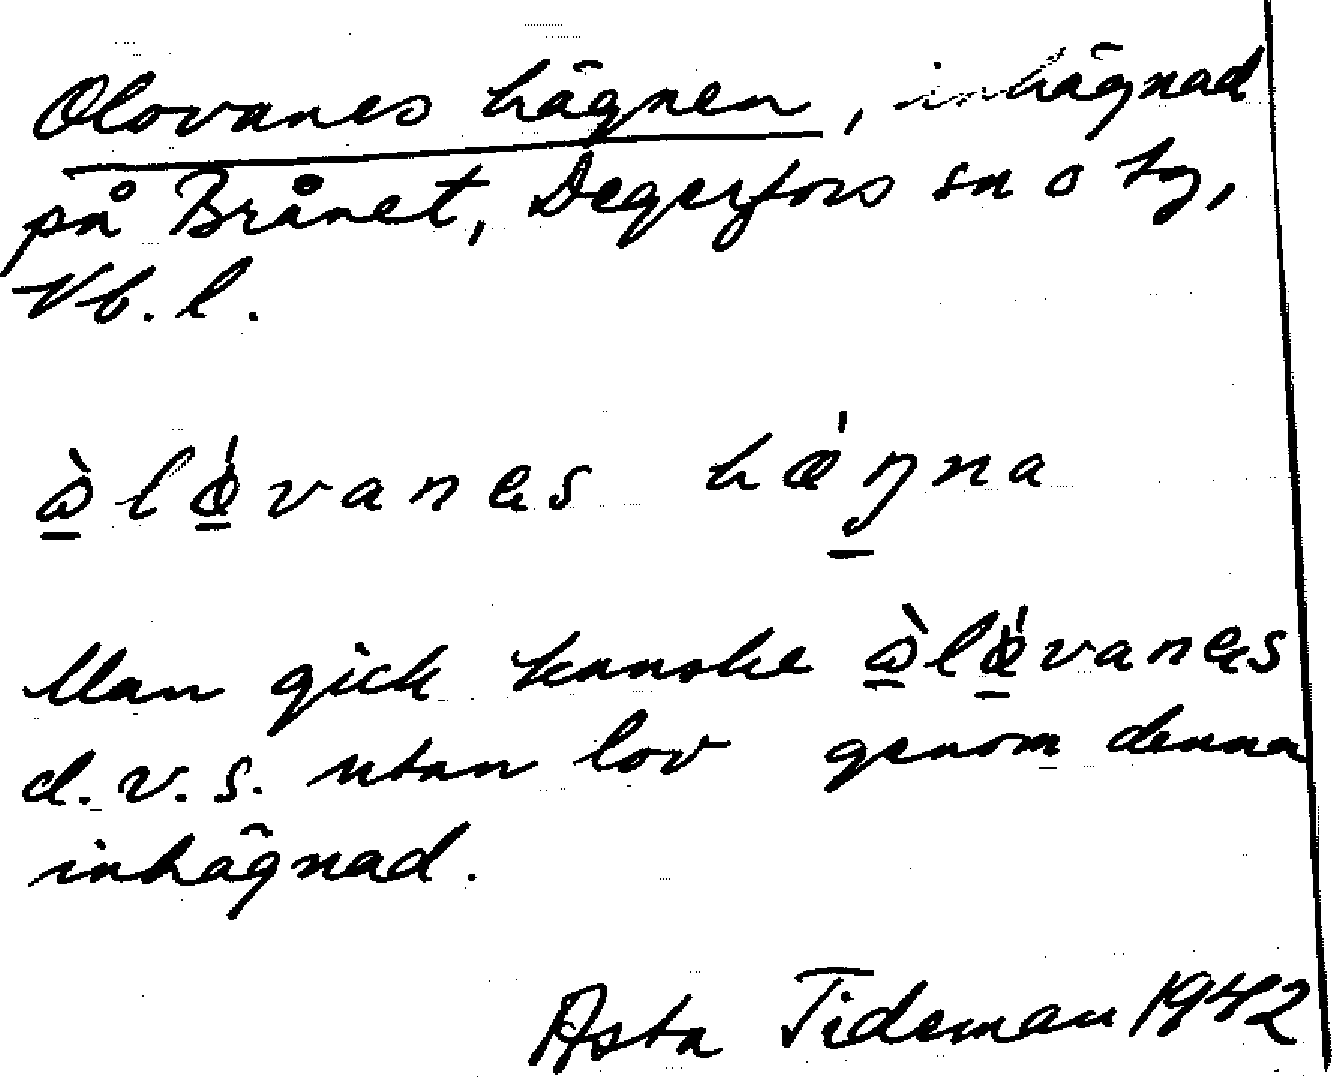 Olovanes hägnen, inhägnad
på Brånet, Degerfors sn o tg,
Vb. l.
Man gick kanske
d.v.s. utan lov genom denna
inhägnad.
Asta Tideman 1942